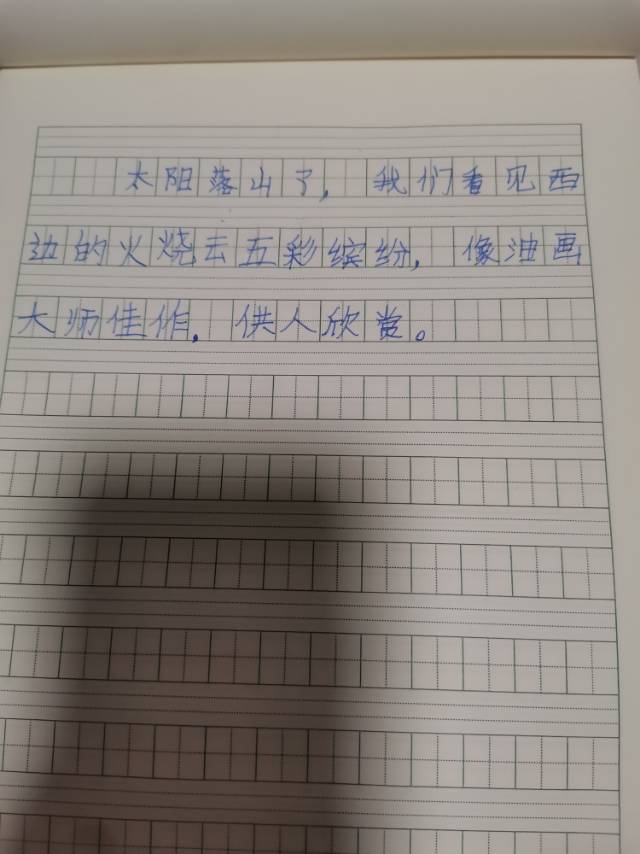 太阳落山了，我们看见西
边的火烧云五彩缤纷，像油画
大师佳作，供人欣赏。